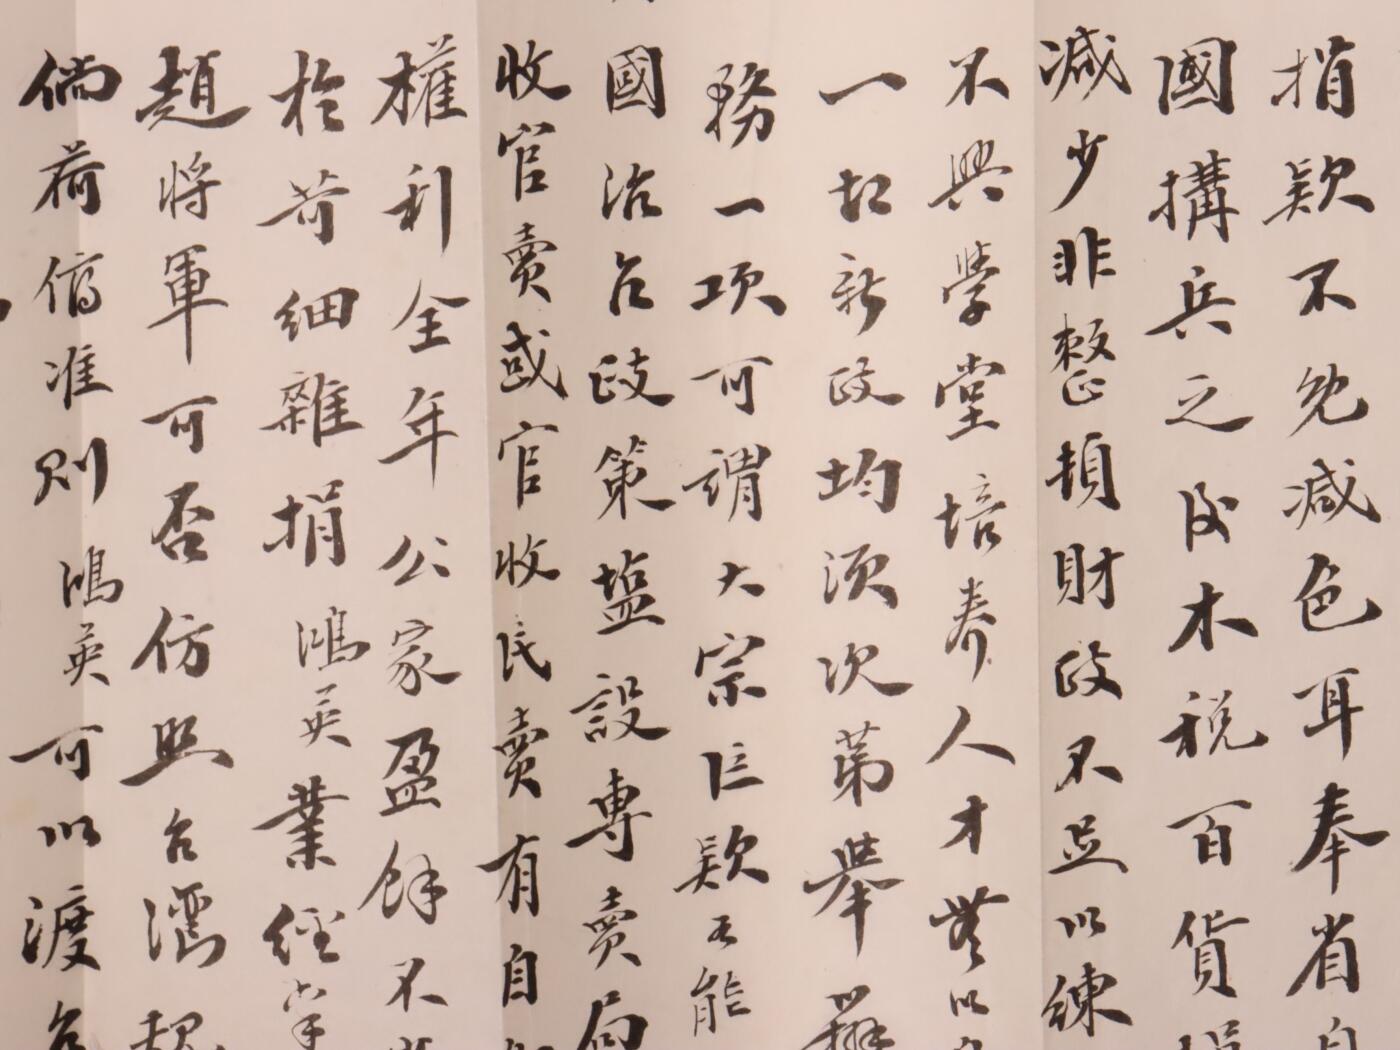 捐欵不免減色耳奉省自
國搆兵之後木稅百貨捐
減少非整頓財政不足以練
不興學堂培養人才無以
一切新政均須次第舉辦
務一項可謂大宗巨欵不能
國治台政策塩設專賣局
收官賣或官收民賣有自
權利全年公家盈餘不
於苛細雜捐鴻英業經掌
趙將軍可否仿照台灣規
倘荷俯准則鴻英可以渡台